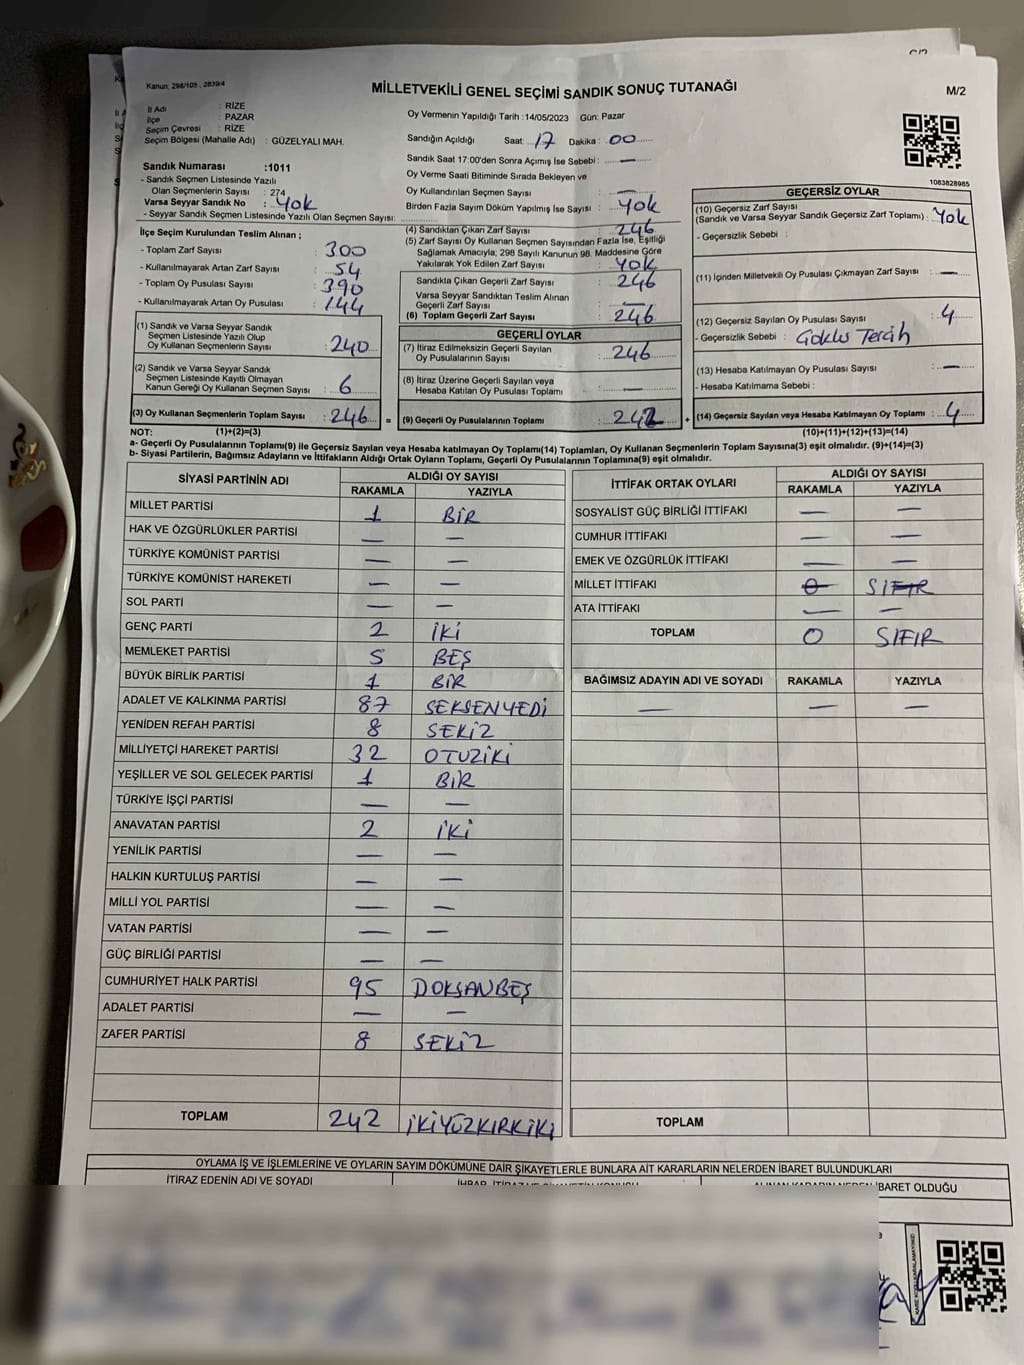 Kanun: 298/105 , 2839/4
MİLLETVEKİLİ GENEL SEÇİMİ SANDIK SONUÇ TUTANAĞI
M/2
İl Adı : RİZE
İlçe : PAZAR
Seçim Çevresi : RİZE
Seçim Bölgesi (Mahalle Adı) : GÜZELYALI MAH.
Oy Vermenin Yapıldığı Tarih : 14/05/2023 Gün: Pazar
Sandığın Açıldığı Saat: 17 Dakika: 00
Sandık Saat 17:00'den Sonra Açımış İse Sebebi : —
Oy Verme Saati Bitiminde Sırada Bekleyen ve
Oy Kullandırılan Seçmen Sayısı : —
Birden Fazla Sayım Döküm Yapılmış İse Sayısı : YOK
1083828985
Sandık Numarası :1011
- Sandık Seçmen Listesinde Yazılı
Olan Seçmenlerin Sayısı : 274
Varsa Seyyar Sandık No : YOK
- Seyyar Sandık Seçmen Listesinde Yazılı Olan Seçmen Sayısı:
İlçe Seçim Kurulundan Teslim Alınan ;
- Toplam Zarf Sayısı : 300
- Kullanılmayarak Artan Zarf Sayısı : 54
- Toplam Oy Pusulası Sayısı : 390
- Kullanılmayarak Artan Oy Pusulası : 144
(1) Sandık ve Varsa Seyyar Sandık
Seçmen Listesinde Yazılı Olup
Oy Kullanan Seçmenlerin Sayısı : 240
(2) Sandık ve Varsa Seyyar Sandık
Seçmen Listesinde Kayıtlı Olmayan
Kanun Gereği Oy Kullanan Seçmen Sayısı : 6
(3) Oy Kullanan Seçmenlerin Toplam Sayısı : 246 =
(4) Sandıktan Çıkan Zarf Sayısı : 246
(5) Zarf Sayısı Oy Kullanan Seçmen Sayısından Fazla İse, Eşitliği
Sağlamak Amacıyla; 298 Sayılı Kanunun 98. Maddesine Göre
Yakılarak Yok Edilen Zarf Sayısı : YOK
Sandıkla Çıkan Geçerli Zarf Sayısı : 246
Varsa Seyyar Sandıktan Teslim Alınan
Geçerli Zarf Sayısı : —
(6) Toplam Geçerli Zarf Sayısı : 246
GEÇERLİ OYLAR
(7) İtiraz Edilmeksizin Geçerli Sayılan
Oy Pusulalarının Sayısı : 246
(8) İtiraz Üzerine Geçerli Sayılan veya
Hesaba Katılan Oy Pusulaları Toplamı : —
(9) Geçerli Oy Pusulalarının Toplamı : 242 +
GEÇERSİZ OYLAR
(10) Geçersiz Zarf Sayısı
(Sandık ve Varsa Seyyar Sandık Geçersiz Zarf Toplamı) : YOK
- Geçersizlik Sebebi :
(11) İçinden Milletvekili Oy Pusulası Çıkmayan Zarf Sayısı : —
(12) Geçersiz Sayılan Oy Pusulası Sayısı : 4
- Geçersizlik Sebebi : Çoklu Tercih
(13) Hesaba Katılmayan Oy Pusulası Sayısı : —
- Hesaba Katılmama Sebebi :
(14) Geçersiz Sayılan veya Hesaba Katılmayan Oy Toplamı : 4
NOT: (1)+(2)=(3) (10)+(11)+(12)+(13)=(14)
a- Geçerli Oy Pusulalarının Toplamı(9) ile Geçersiz Sayılan veya Hesaba katılmayan Oy Toplamı(14) Toplamları, Oy Kullanan Seçmenlerin Toplam Sayısına(3) eşit olmalıdır. (9)+(14)=(3)
b- Siyasi Partilerin, Bağımsız Adayların ve İttifakların Aldığı Ortak Oyların Toplamı, Geçerli Oy Pusulalarının Toplamına(9) eşit olmalıdır.
SİYASİ PARTİNİN ADI ALDIĞI OY SAYISI
RAKAMLA YAZIYLA
MİLLET PARTİSİ 1 BİR
HAK VE ÖZGÜRLÜKLER PARTİSİ — —
TÜRKİYE KOMÜNİST PARTİSİ — —
TÜRKİYE KOMÜNİST HAREKETİ — —
SOL PARTİ — —
GENÇ PARTİ 2 İKİ
MEMLEKET PARTİSİ 5 BEŞ
BÜYÜK BİRLİK PARTİSİ 1 BİR
ADALET VE KALKINMA PARTİSİ 87 SEKSENYEDİ
YENİDEN REFAH PARTİSİ 8 SEKİZ
MİLLİYETÇİ HAREKET PARTİSİ 32 OTUZİKİ
YEŞİLLER VE SOL GELECEK PARTİSİ 1 BİR
TÜRKİYE İŞÇİ PARTİSİ — —
ANAVATAN PARTİSİ 2 İKİ
YENİLİK PARTİSİ — —
HALKIN KURTULUŞ PARTİSİ — —
MİLLİ YOL PARTİSİ — —
VATAN PARTİSİ — —
GÜÇ BİRLİĞİ PARTİSİ — —
CUMHURİYET HALK PARTİSİ 95 DOKSANBEŞ
ADALET PARTİSİ — —
ZAFER PARTİSİ 8 SEKİZ
TOPLAM 242 İKİYÜZKIRKİKİ
İTTİFAK ORTAK OYLARI ALDIĞI OY SAYISI
RAKAMLA YAZIYLA
SOSYALİST GÜÇ BİRLİĞİ İTTİFAKI — —
CUMHUR İTTİFAKI — —
EMEK VE ÖZGÜRLÜK İTTİFAKI — —
MİLLET İTTİFAKI 0 SIFIR
ATA İTTİFAKI — —
TOPLAM 0 SIFIR
BAĞIMSIZ ADAYIN ADI VE SOYADI RAKAMLA YAZIYLA
— — —
TOPLAM
OYLAMA İŞ VE İŞLEMLERİNE VE OYLARIN SAYIM DÖKÜMÜNE DAİR ŞİKAYETLERLE BUNLARA AİT KARARLARIN NELERDEN İBARET BULUNDUKLARI
İTİRAZ EDENİN ADI VE SOYADI
İBARET OLDUĞU